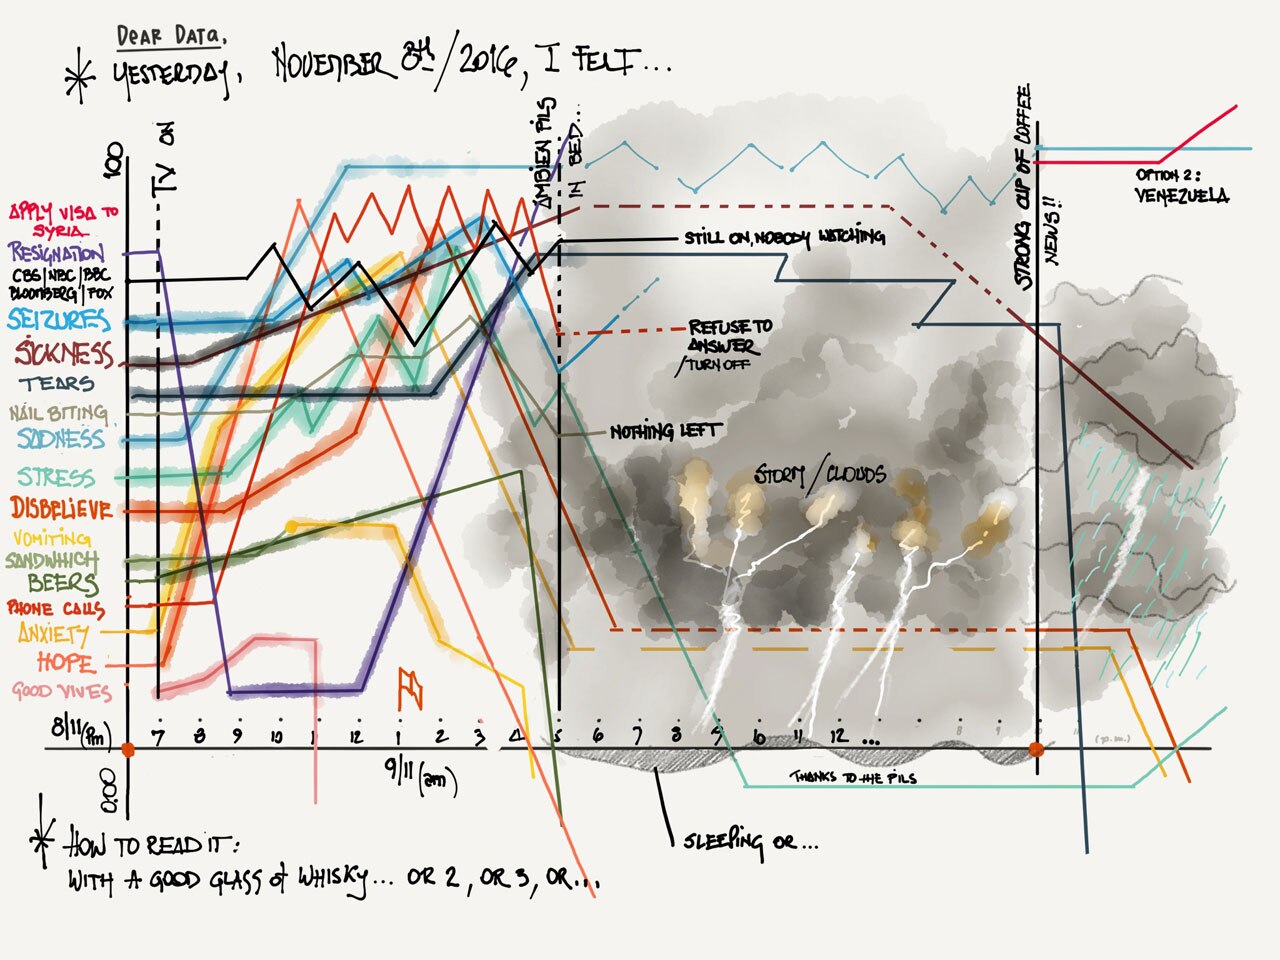 DEAR DATA,
* YESTERDAY, NOVEMBER 8th/2016, I FELT...
100
TV ON
AMBIEN PILS
IN BED...
STRONG CUP OF COFFEE
NEWS!!
OPTION 2:
VENEZUELA
APPLY VISA TO
SYRIA
RESIGNATION
CBS/NBC/BBC
BLOOMBERG/FOX
SEIZURES
SICKNESS
TEARS
NAIL BITING
SADNESS
STRESS
DISBELIEVE
VOMITING
SANDWHICH
BEERS
PHONE CALLS
ANXIETY
HOPE
GOOD VIVES
STILL ON, NOBODY WATCHING
REFUSE TO
ANSWER
/TURN OFF
NOTHING LEFT
STORM/CLOUDS
8/11(Pm) 7 8 9 10 11 12 1 2 3 4 5 6 7 8 9 10 11 12 ... 8 9 (p.m.)
9/11(am)
0.00
THANKS TO THE PILS
SLEEPING OR...
* HOW TO READ IT:
WITH A GOOD GLASS of WHISKY... OR 2, OR 3, OR...